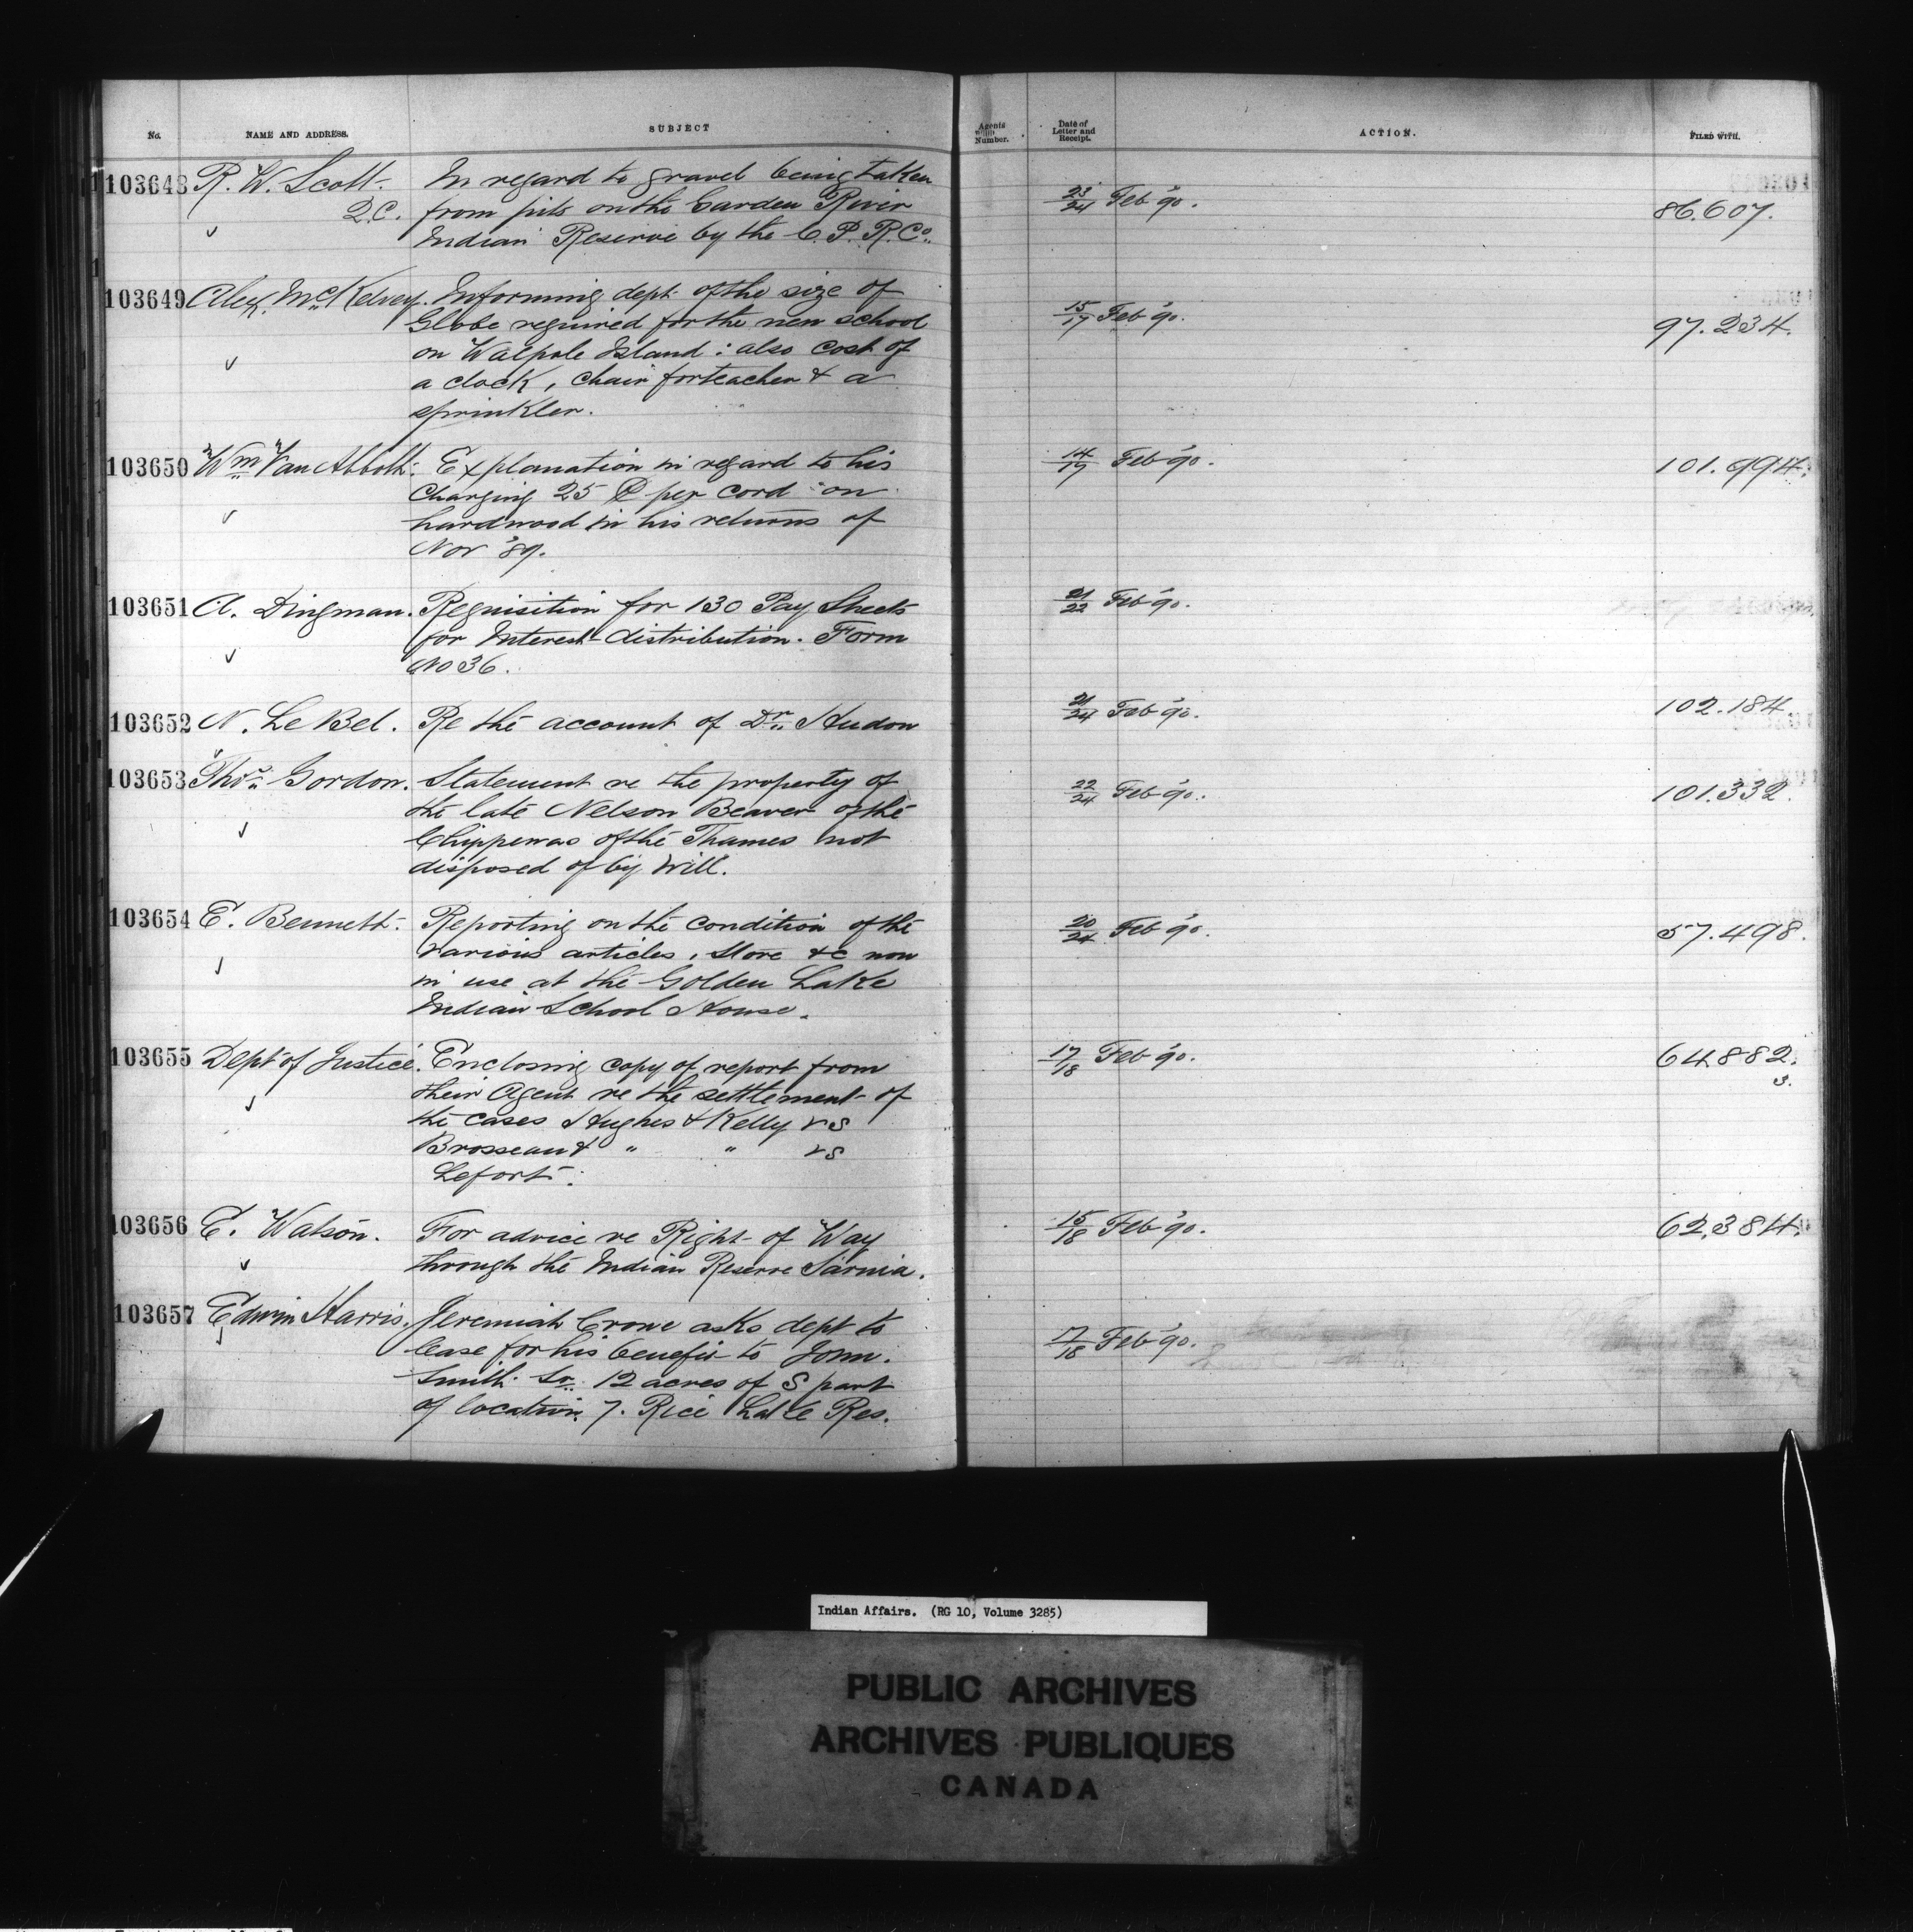 No. NAME AND ADDRESS. SUBJECT Agents Number. Date of Letter and Receipt. ACTION. FILED WITH.
103648 R. W. Scott. In regard to gravel being taken
Q.C. from pits on the Garden River 23/24 Feb '90. 86.607.
Indian Reserve by the C. P. R. Co.
103649 Alex. McKelvey. Informing dept. of the size of
Globe required for the new school 15/17 Feb '90. 97.234.
on Walpole Island : also cost of
a clock, chair for teacher & a
sprinkler.
103650 Wm Van Abbott. Explanation in regard to his 14/17 Feb '90. 101.994.
charging 25 ¢ per cord on
hardwood in his returns of
Nov '89.
103651 A. Dingman. Requisition for 130 Pay Sheets 21/22 Feb '90.
for Interest distribution. Form
No 36.
103652 N. Le Bel. Re the account of Dr. Hudon 21/24 Feb '90. 102.184.
103653 Thos Gordon. Statement re the property of 22/24 Feb '90. 101.332.
the late Nelson Beaver of the
Chippewas of the Thames not
disposed of by Will.
103654 E. Bennett. Reporting on the condition of the 20/24 Feb '90. 57.498.
various articles, Stove &c now
in use at the Golden Lake
Indian School House.
103655 Dept of Justice. Enclosing copy of report from 17/18 Feb '90. 64882.
their Agent re the settlement of 3.
the cases Hughes & Kelly vs
Brosseau & " " vs
Lefort.
103656 E. Watson. For advice re Right of Way 15/18 Feb '90. 62,384.
through the Indian Reserve Sarnia.
103657 Edwin Harris. Jeremiah Crowe asks dept to
lease for his benefit to John 17/18 Feb '90.
Smith Sr. 12 acres of S part
of location 7. Rice Lake Res.
Indian Affairs. (RG 10, Volume 3285)
PUBLIC ARCHIVES
ARCHIVES PUBLIQUES
CANADA